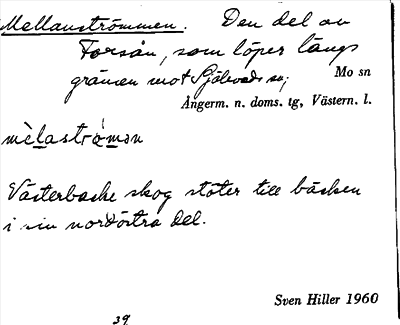 Mellanströmmen. Den del av
Forsån, som löper längs
gränsen mot Själevads sn;
Mo sn
Ångerm. n. doms. tg, Västern. l.
mèlaströ̀mən
Västerbacke skog stöter till bäcken
i sin nordöstra del.
Sven Hiller 1960
39